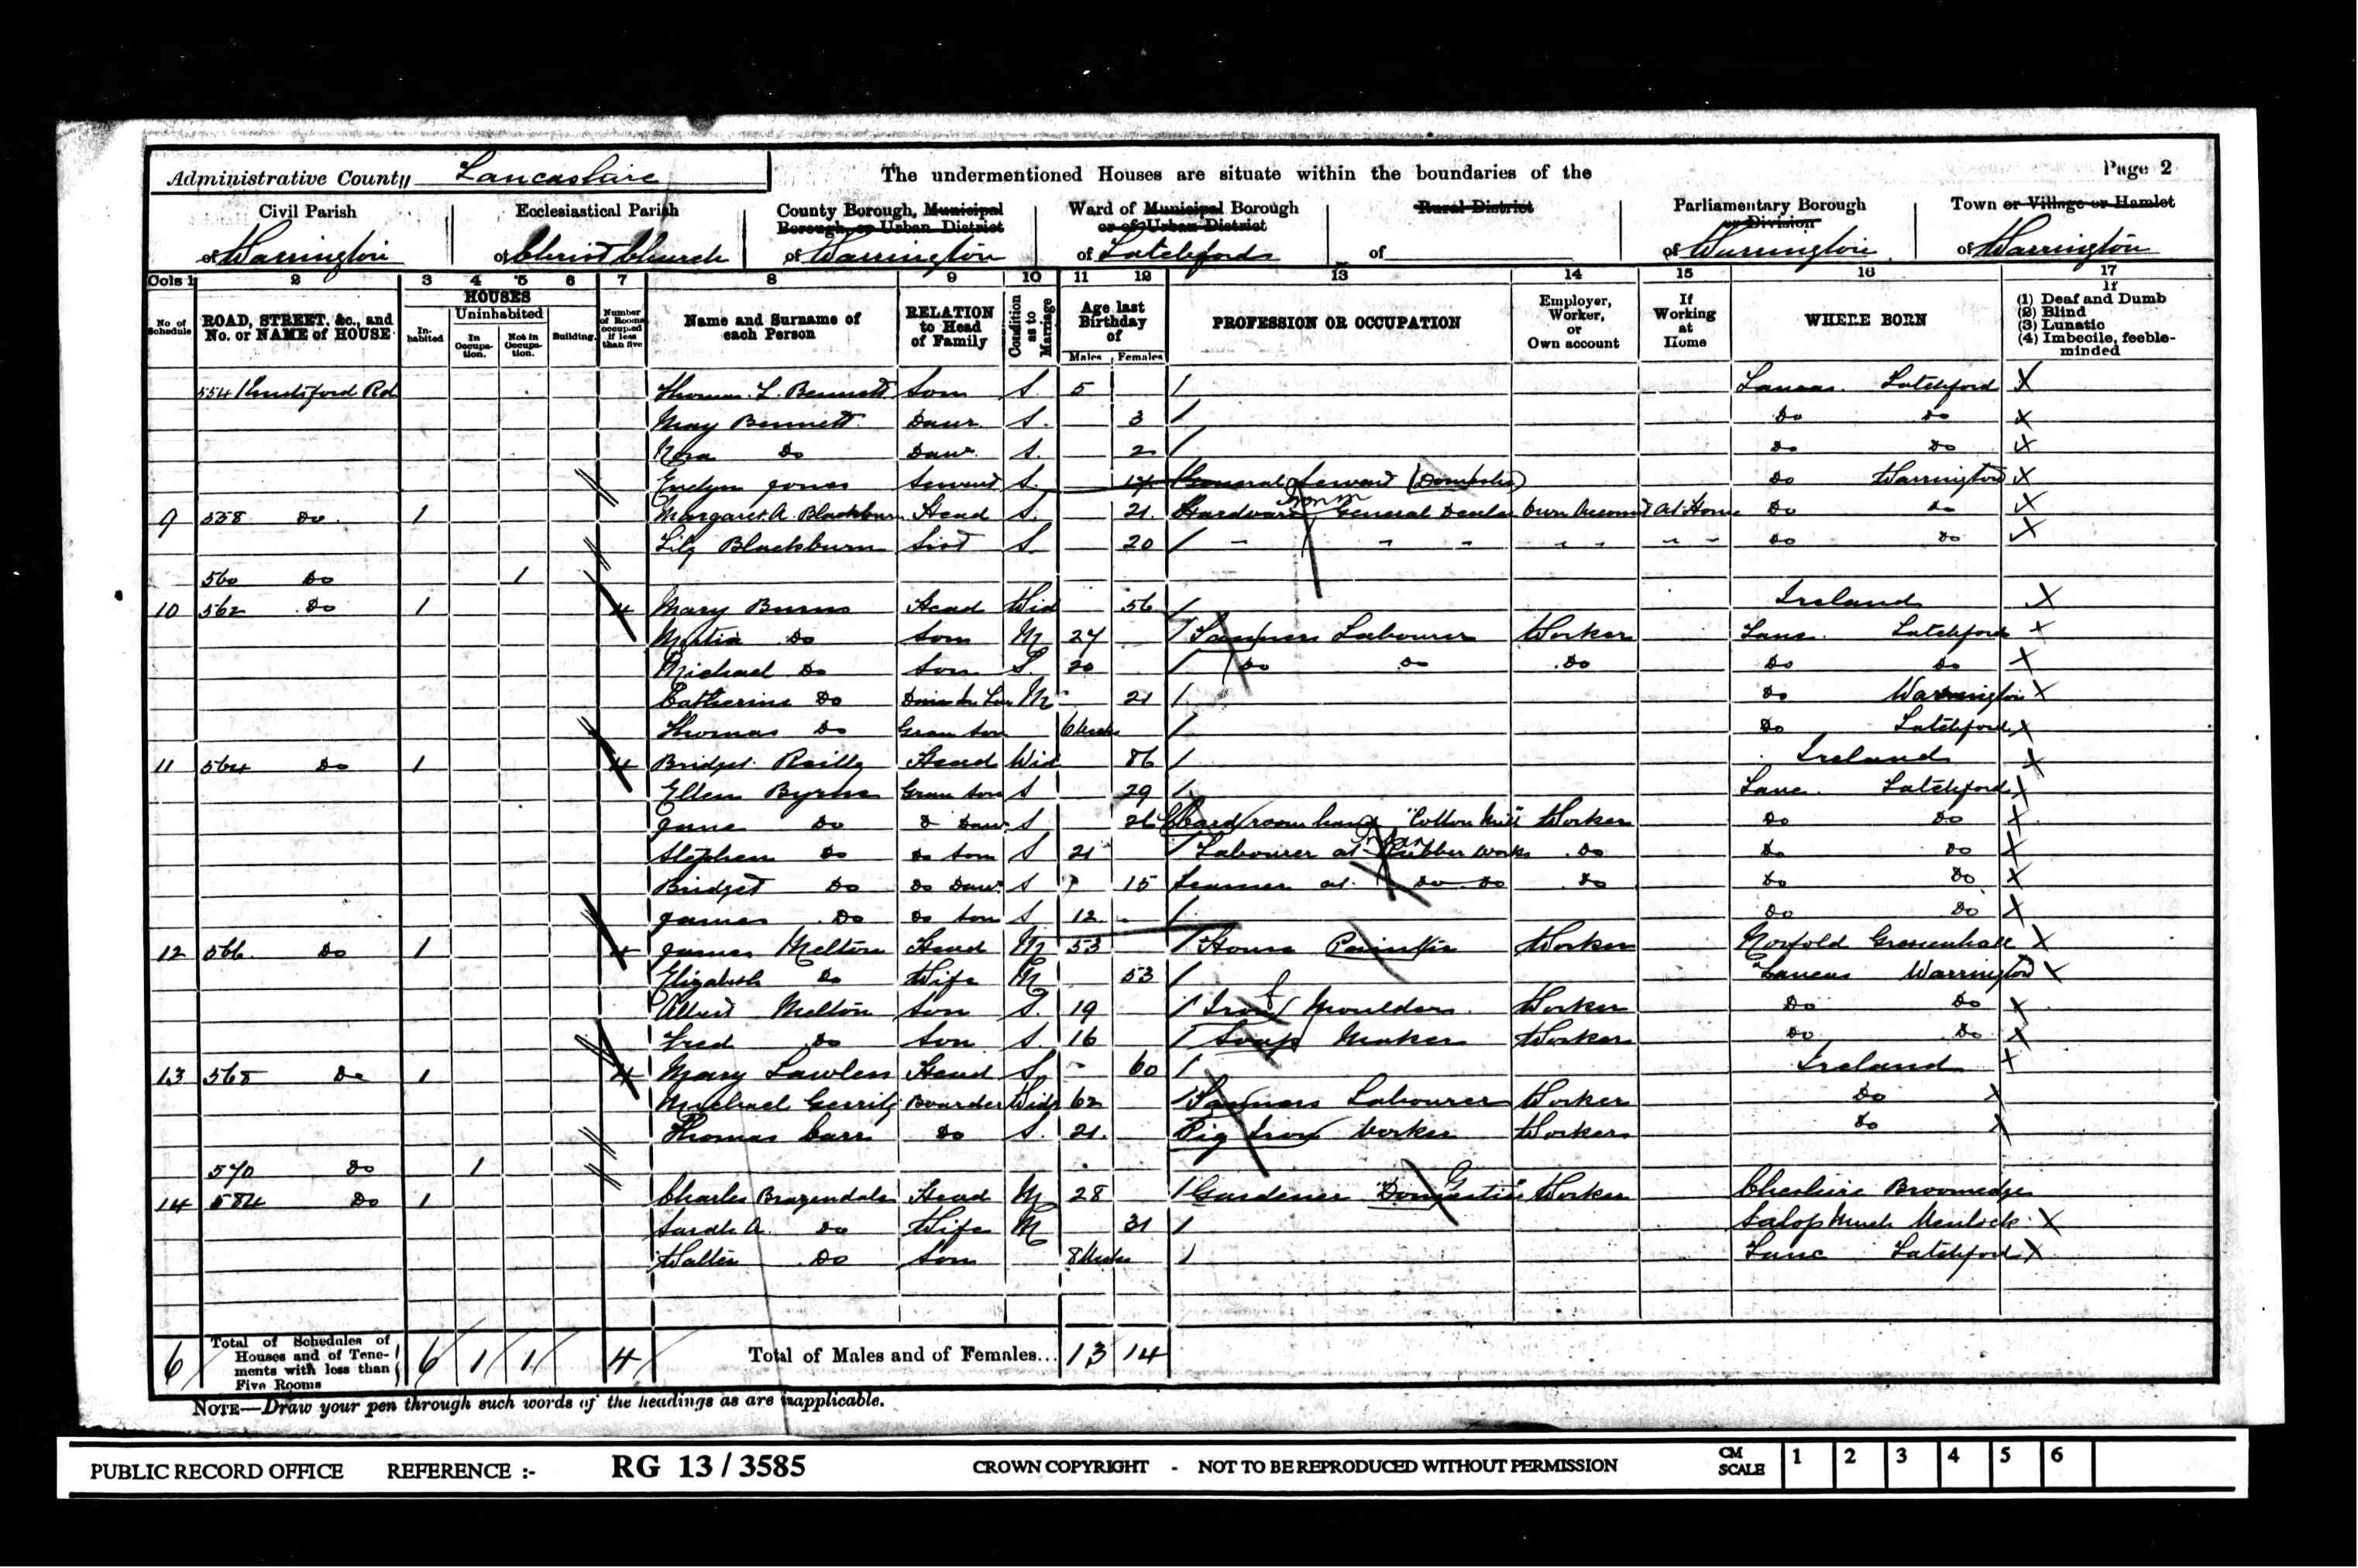 Administrative County Lancashire The undermentioned Houses are situate within the boundaries of the Page 2
Civil Parish Ecclesiastical Parish County Borough, Municipal Borough, or Urban District Ward of Municipal Borough or of Urban District Rural District Parliamentary Borough or Division Town or Village or Hamlet
of Warrington of Christ Church of Warrington of Latchford of of Warrington of Warrington
Cols 1 2 3 4 5 6 7 8 9 10 11 12 13 14 15 16 17
No. of Schedule ROAD, STREET, &c., and No. or NAME of HOUSE HOUSES Inhabited Uninhabited In Occupation. Not in Occupation. Building. Number of Rooms occupied if less than five Name and Surname of each Person RELATION to Head of Family Condition as to Marriage Age last Birthday of Males Females PROFESSION OR OCCUPATION Employer, Worker, or Own account If Working at Home WHERE BORN If (1) Deaf and Dumb (2) Blind (3) Lunatic (4) Imbecile, feeble-minded
554 Knutsford Rd Thomas L. Bennett Son S. 5 / Lancas. Latchford X
May Bennett Daur. S. 3 / Do Do X
Nora Do Daur. S. 2 / Do Do X
Evelyn Jones Servant S. General Servant (Domestic) Do Warrington X
9 558 Do 1 Margaret A. Blackburn Head S. 21 Hardware General Dealer Own Account At Home Do Do X
Lily Blackburn Sist S 20 / - - - - - - - Do Do X
560 Do 1
10 562 Do 1 4 Mary Burns Head Wid 56 / Ireland X
Martin Do Son M 24 / Tanners Labourer Worker Lanc. Latchford X
Michael Do Son S. 20 / Do Do Do Do Do X
Catherine Do Daur in Law M 21 / Do Warrington X
Thomas Do Gran Son 6 Weeks / Do Latchford X
11 564 Do 1 4 Bridget Reilly Head Wid 86 / Ireland X
Ellen Byrne Gran Son S 29 / Lanc. Latchford X
Jane Do D Daur S 26 Card room hand "Cotton Mill" Worker Do Do X
Stephen Do Do Son S 21 / Labourer at Rubber Works Do Do Do X
Bridget Do Do Daur S 15 Learner at Do Do Do Do Do X
James Do Do Son S 12 / Do Do X
12 566 Do 1 4 James Melton Head M 53 / House Painter Worker Norfold Gressenhall X
Elizabeth Do Wife M 53 / Lancas Warrington X
Albert Melton Son S. 19 / Iron Moulder Worker Do Do X
Fred Do Son S. 16 / Soap Maker Worker Do Do X
13 568 Do 1 4 Mary Lawless Head S. - 60 / Ireland X
Michael Boarder Widr 62 / Tanners Labourer Worker Do X
Thomas Carr Do S. 21 Pig Iron Worker Worker Do X
570 Do 1
14 584 Do 1 Charles Brazendale Head M 28 / Gardener "Domestic" Worker Cheshire Broomedge
Sarah A. Do Wife M 31 / Salop Much Wenlock X
Walter Do Son 8 Weeks / Lanc Latchford X
6 Total of Schedules of Houses and of Tenements with less than Five Rooms 6 1 1 4 Total of Males and of Females... 13 14
NOTE—Draw your pen through such words of the headings as are inapplicable.
PUBLIC RECORD OFFICE REFERENCE :- RG 13 / 3585 CROWN COPYRIGHT - NOT TO BE REPRODUCED WITHOUT PERMISSION CM SCALE 1 2 3 4 5 6